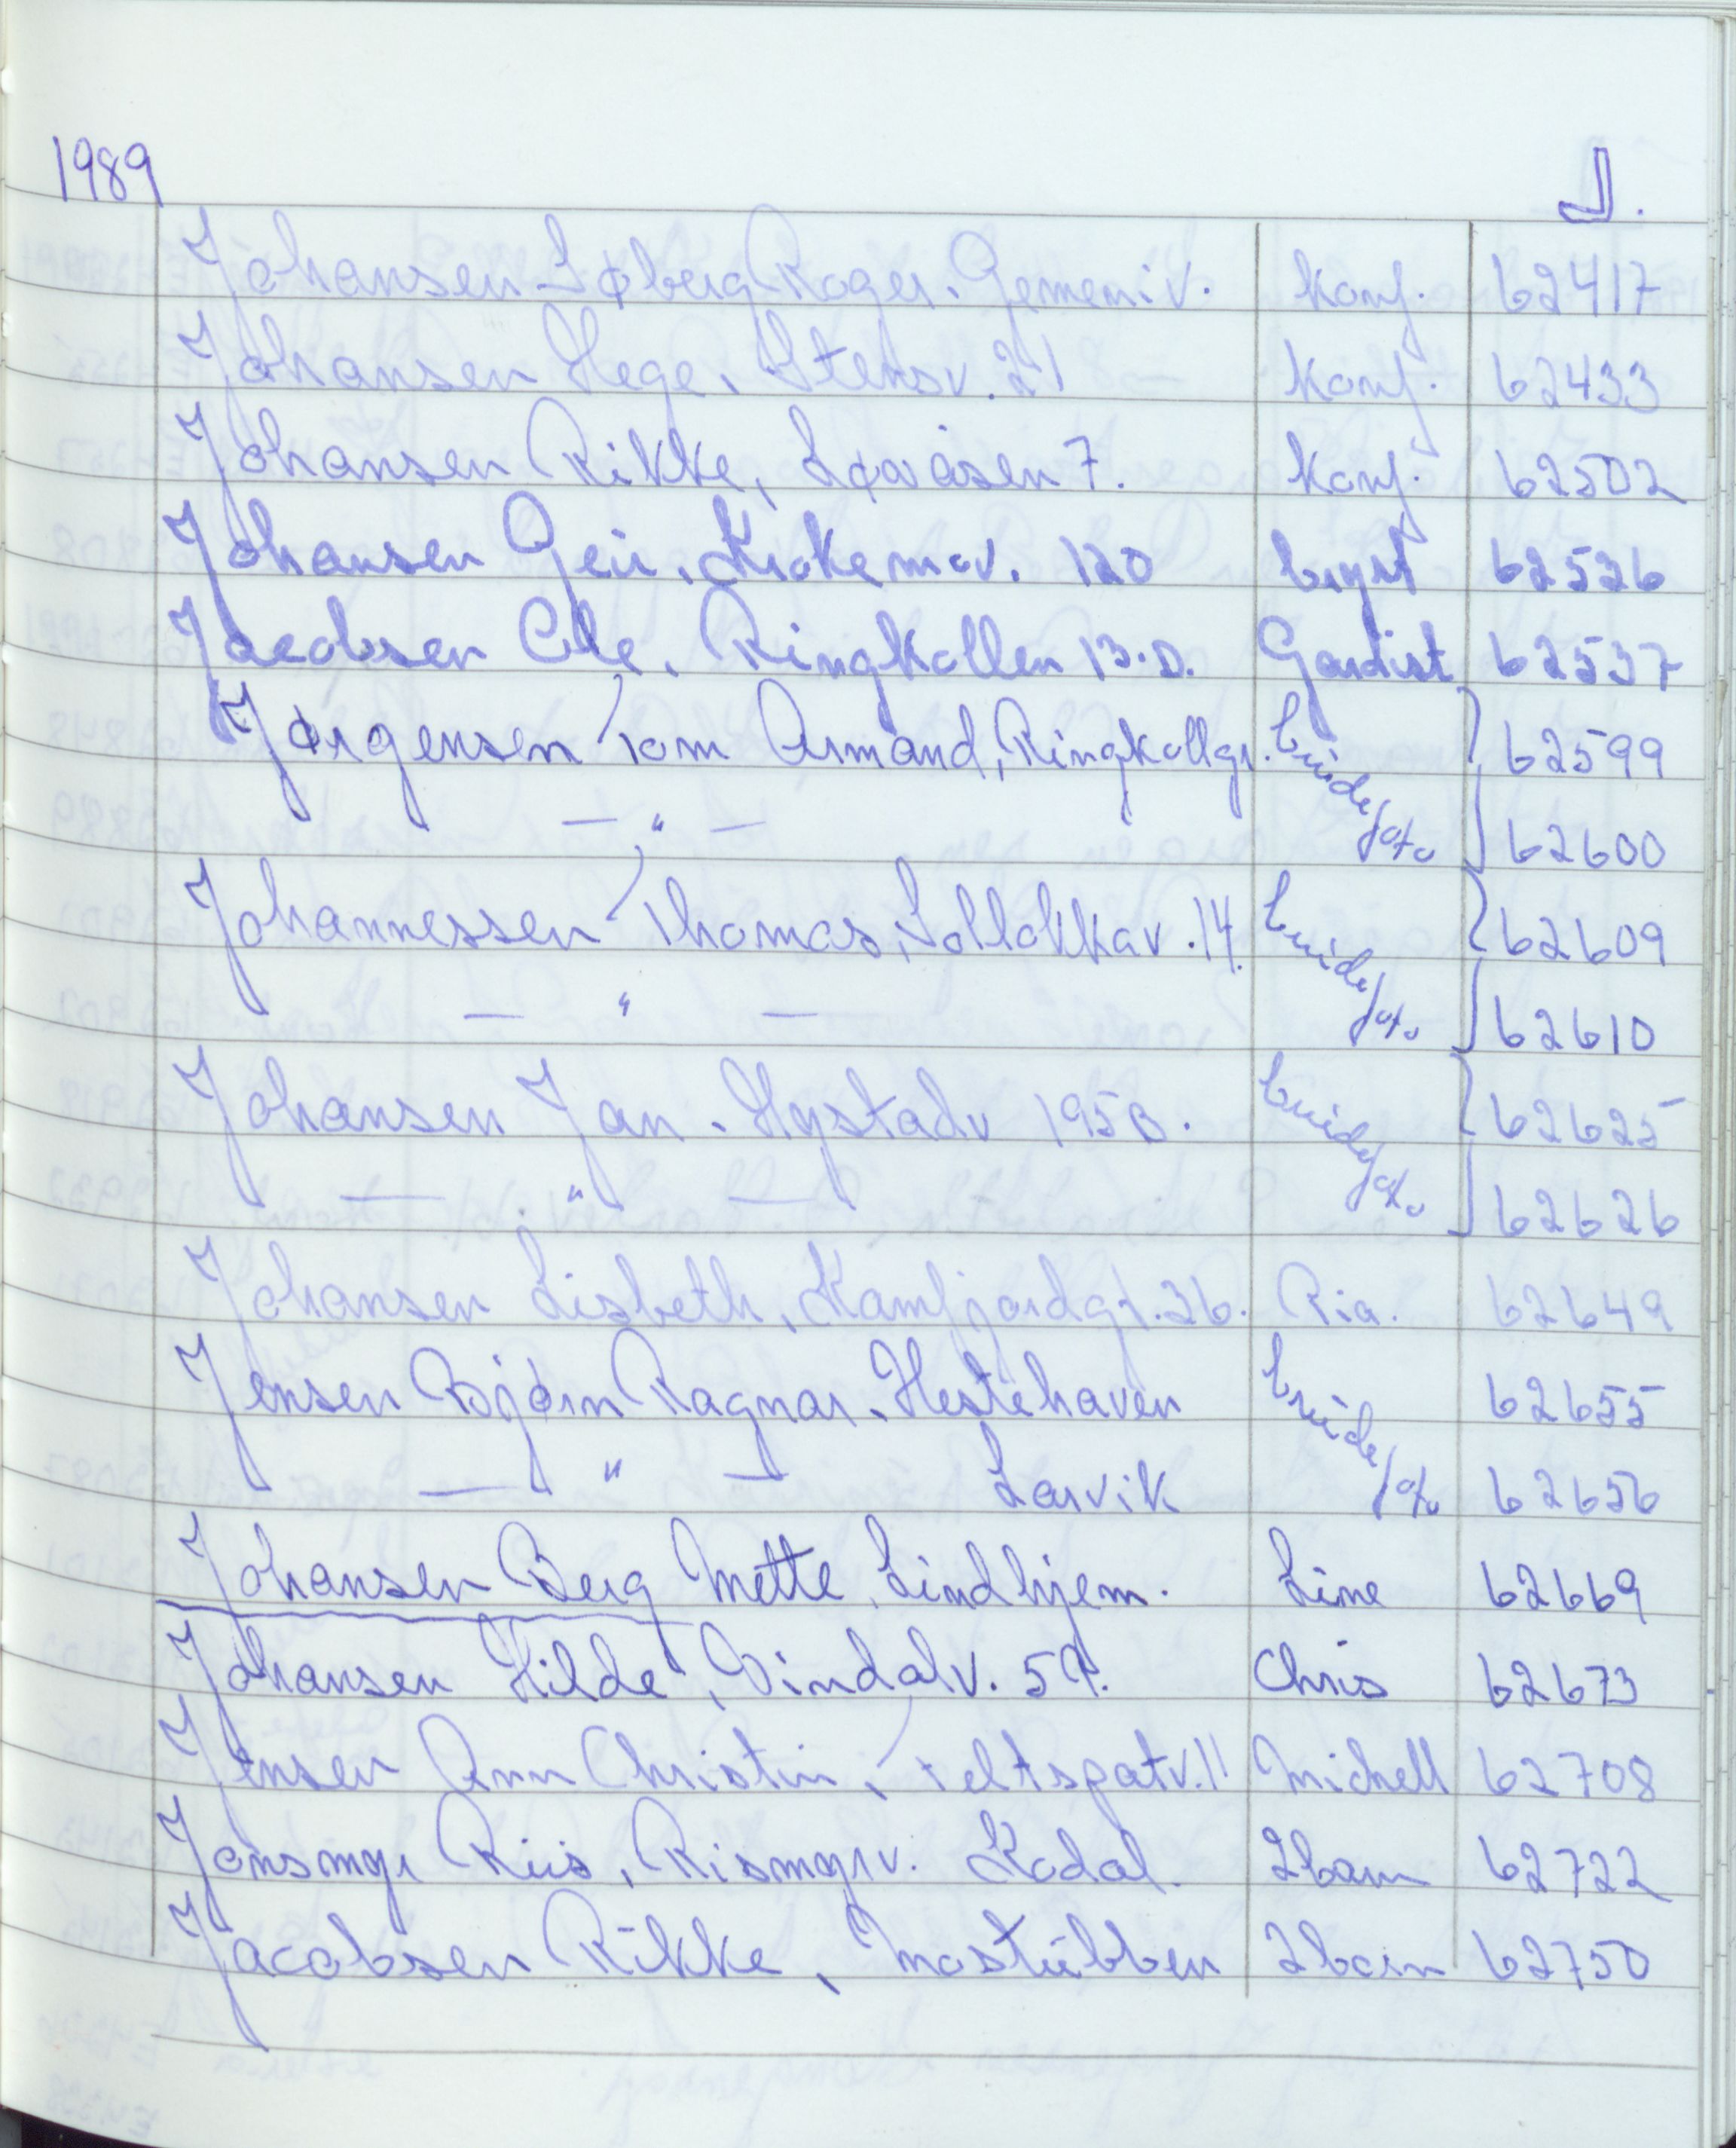 1989 J.
Johansen Søberg Roger. Gemeniv. konf. 62417
Johansen Hege, Stensv. 21 konf. 62433
Johansen Rikke, Løvåsen 7. konf. 62502
Johansen Geir, Krokemov. 120 bryst 62526
Jacobsen Ole, Ringkollen 13.D. Gardist 62537
Jørgensen Tom Armand, Ringkollgr. brude/foto 62599
— " — 62600
Johannessen Thomas, Solløkkav. 14. brude/foto 62609
— " — 62610
Johansen Jan. Hystadv 195B. brude/foto 62625
— " — 62626
Johansen Lisbeth, Kamfjordgt. 26. Pia. 62649
Jensen Bjørn Ragnar. Hestehaven brude/foto 62655
— " — Larvik 62656
Johansen Berg Mette, Lindhjem. Line 62669
Johansen Hilde, Vindalv. 59. Chris 62673
Jensen Ann Christin, Feltspatv. 11 Michell 62708
Jonsmyr Riis, Rismyrv. Kodal. 2barn 62722
Jacobsen Rikke, Mostubben 2barn 62750